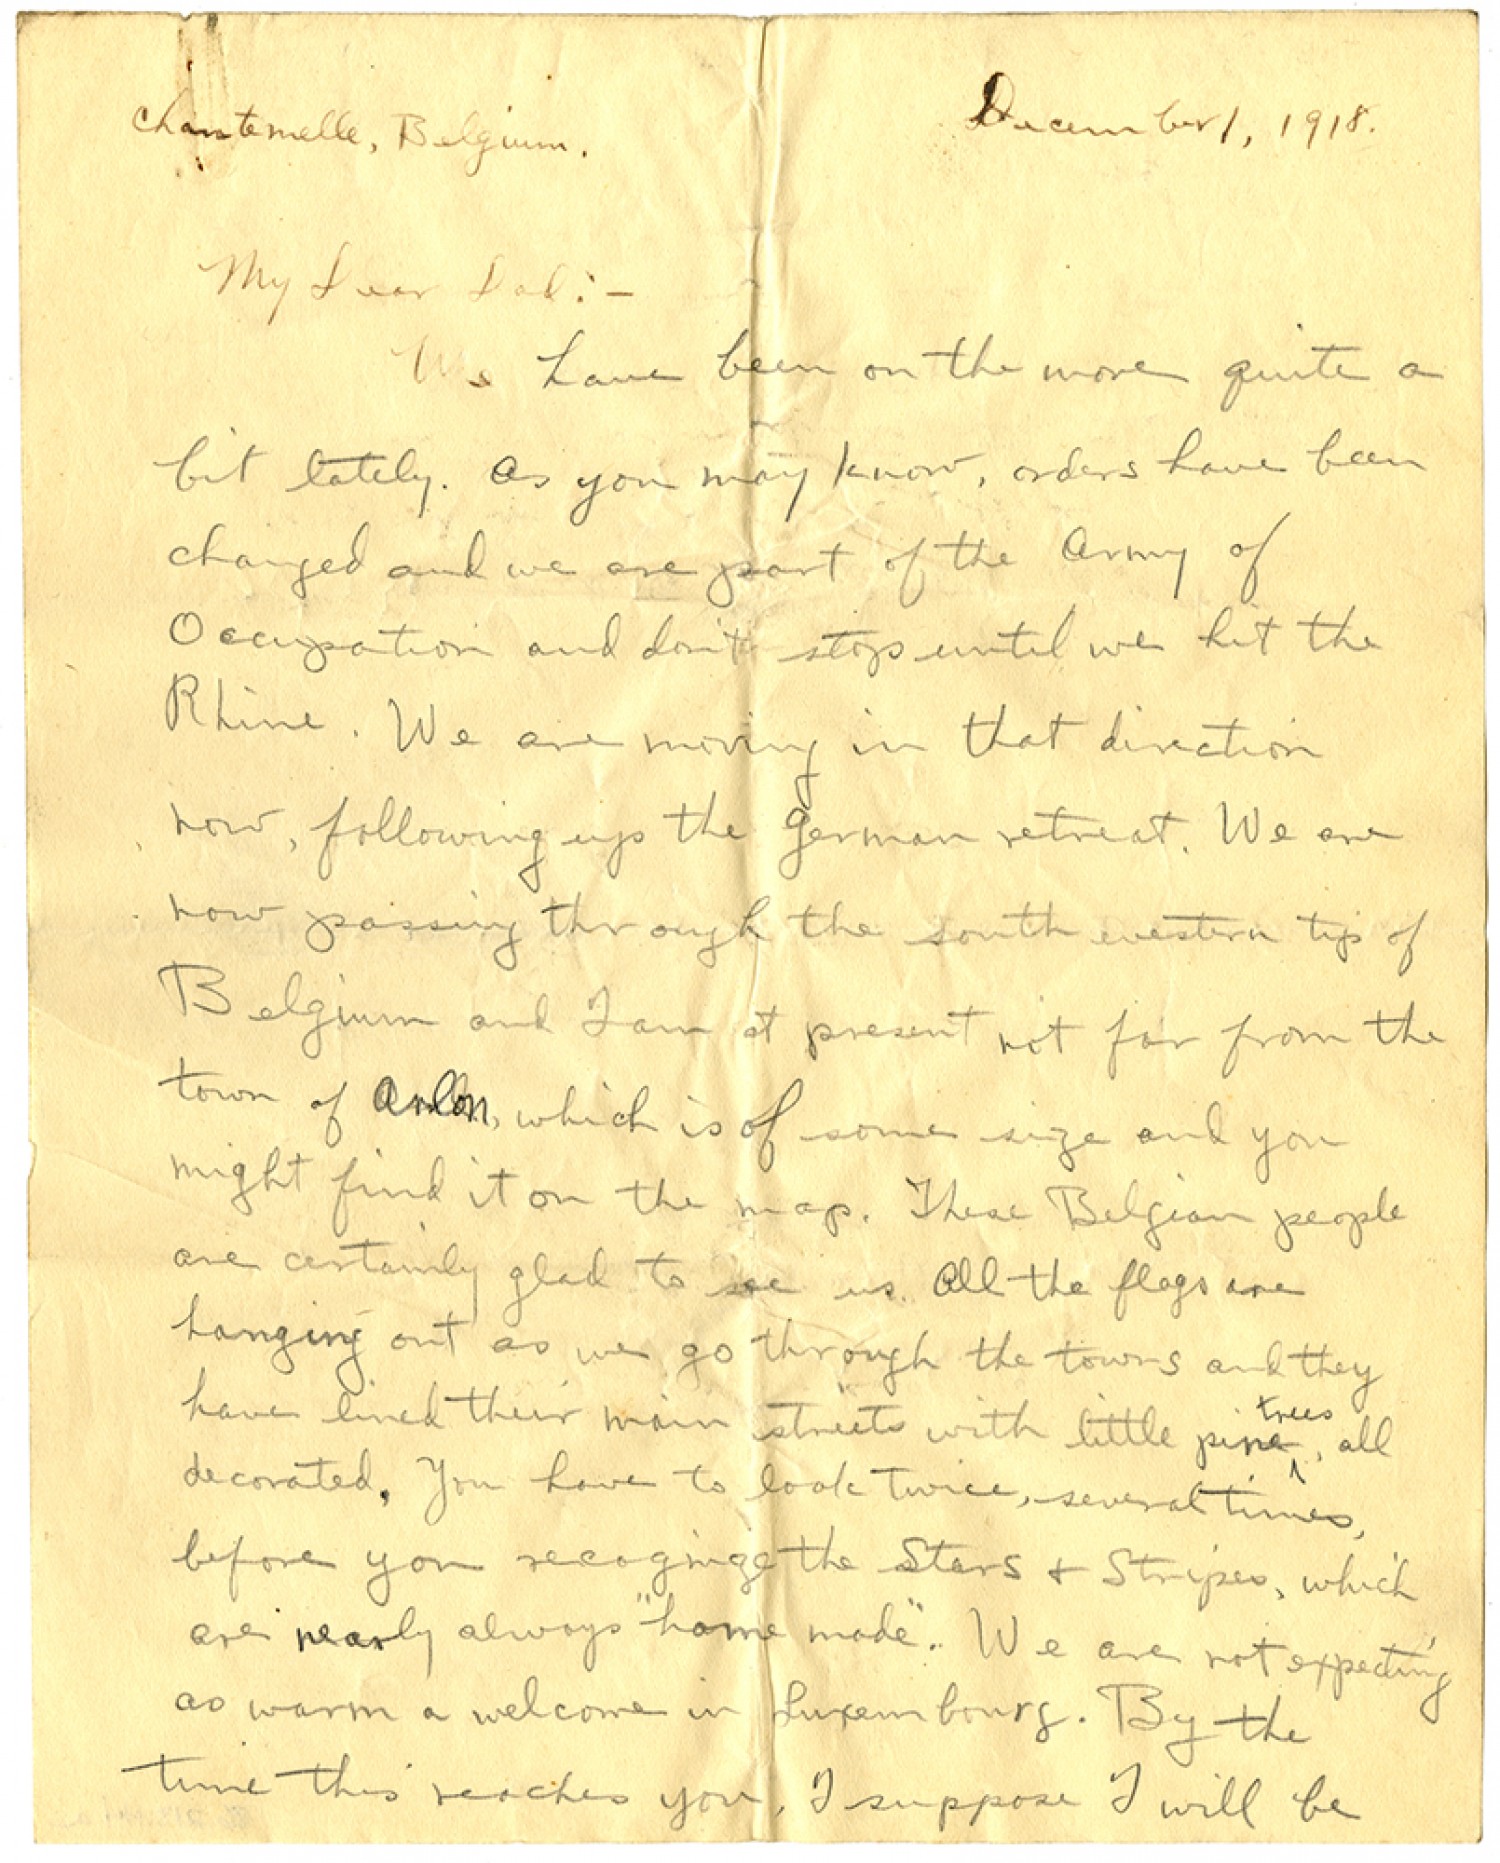 Chantemelle, Belgium.
December 1, 1918.
My Dear Dad:-
We have been on the move quite a
bit lately. As you may know, orders have been
changed and we are part of the Army of
Occupation and don't stop until we hit the
Rhine. We are moving in that direction
now, following up the German retreat. We are
now passing through the south western tip of
Belgium and I am at present not far from the
town of Arlon, which is of some size and you
might find it on the map. These Belgian people
are certainly glad to see us. All the flags are
hanging out as we go through the towns and they
have lined their main streets with little pine trees, all
decorated. You have to look twice, several times,
before you recoginize the Stars + Stripes, which
are nearly always "home made". We are not expecting
as warm a welcome in Luxembourg. By the
time this reaches you, I suppose I will be